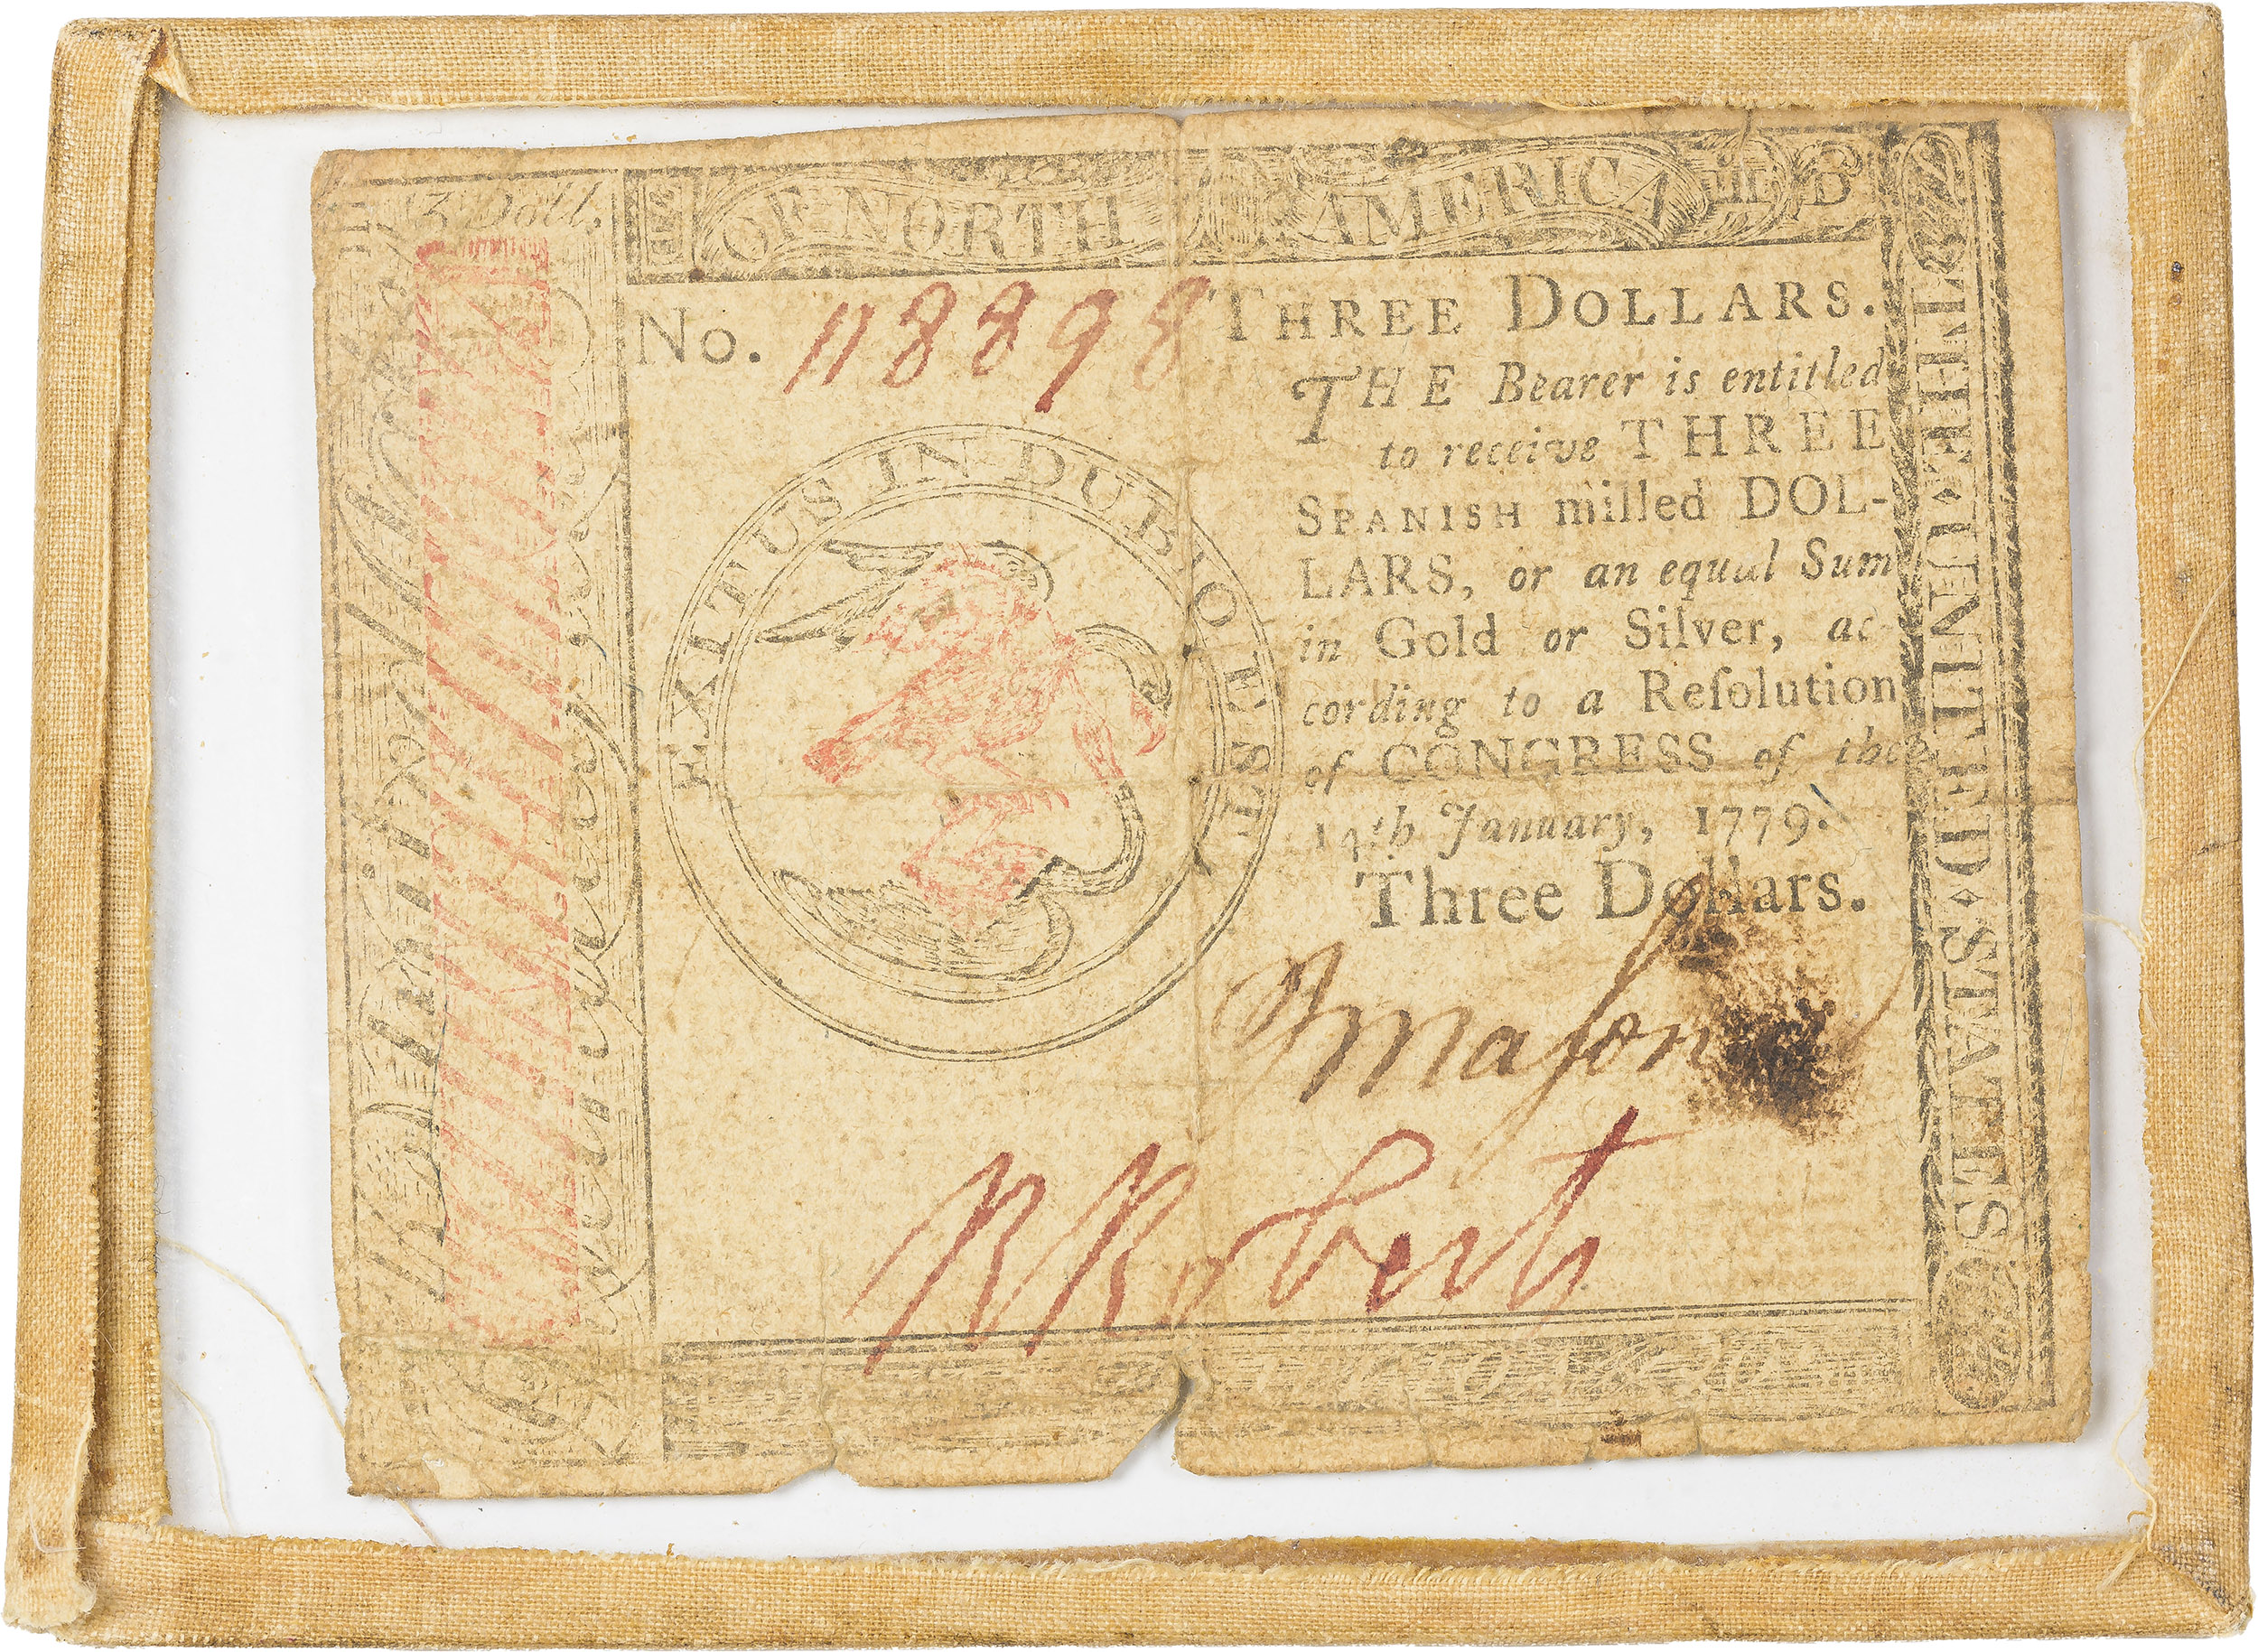 3 Doll.
OF NORTH AMERICA
THE UNITED STATES
No. 118898
THREE DOLLARS.
THE Bearer is entitled
to receive THREE
SPANISH milled DOL-
LARS, or an equal Sum
in Gold or Silver, ac-
cording to a Reſolution
of CONGRESS of the
14th January, 1779.
Three Dollars.
EXITUS IN DUBIO EST
Maſon
R Roberts